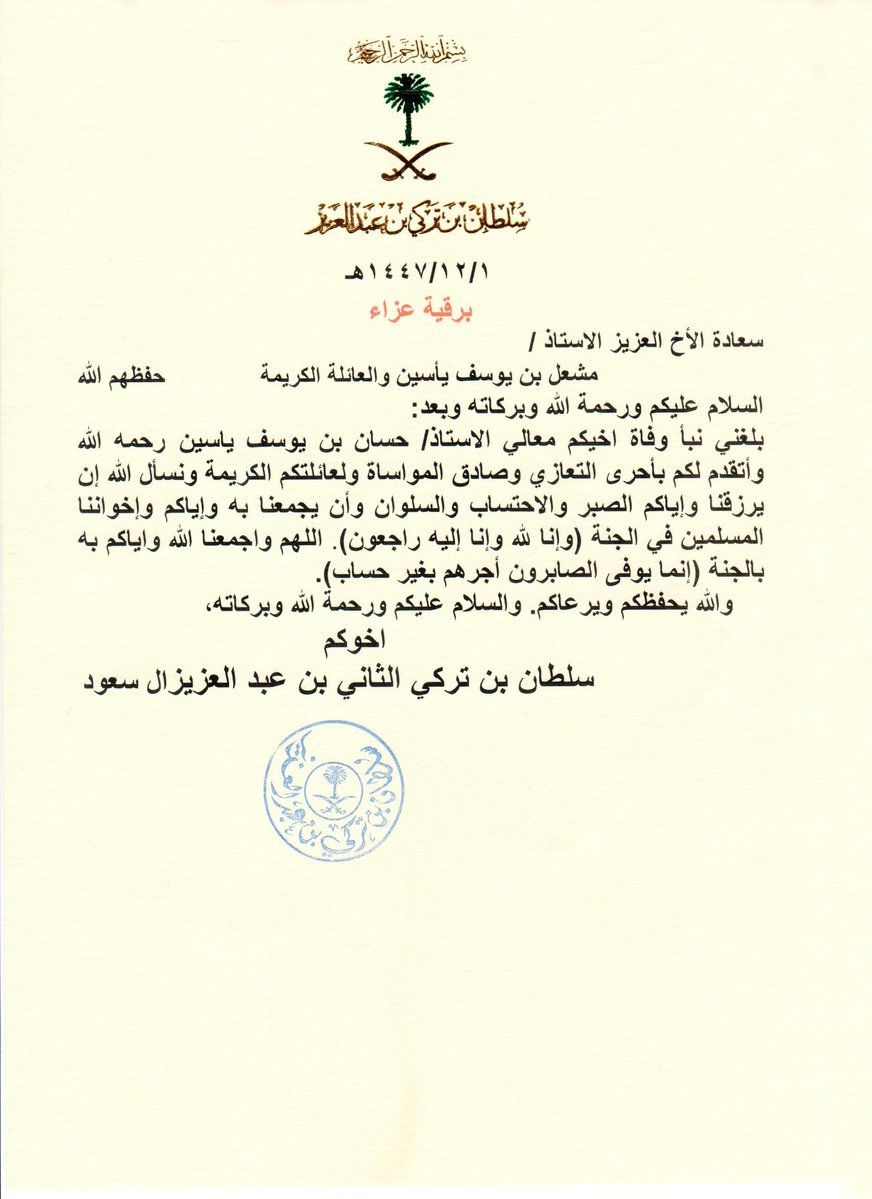 بسم الله الرحمن الرحيم
سلطان بن تركي بن عبدالعزيز
١٤٤٧/١٢/١هـ
برقية عزاء
سعادة الأخ العزيز الاستاذ /
مشعل بن يوسف يأسين والعائلة الكريمة حفظهم الله
السلام عليكم ورحمة الله وبركاته وبعد:
بلغني نبأ وفاة اخيكم معالي الاستاذ/ حسان بن يوسف ياسين رحمه الله
وأتقدم لكم بأحرى التعازي وصادق المواساة ولعائلتكم الكريمة ونسأل الله إن
يرزقنا وإياكم الصبر والاحتساب والسلوان وأن يجمعنا به وإياكم وإخواننا
المسلمين في الجنة (وإنا لله وإنا إليه راجعون). اللهم واجمعنا الله واياكم به
بالجنة (إنما يوفى الصابرون أجرهم بغير حساب).
والله يحفظكم ويرعاكم. والسلام عليكم ورحمة الله وبركاته،
اخوكم
سلطان بن تركي الثاني بن عبد العزيزال سعود
سلطان بن تركي بن عبدالعزيز